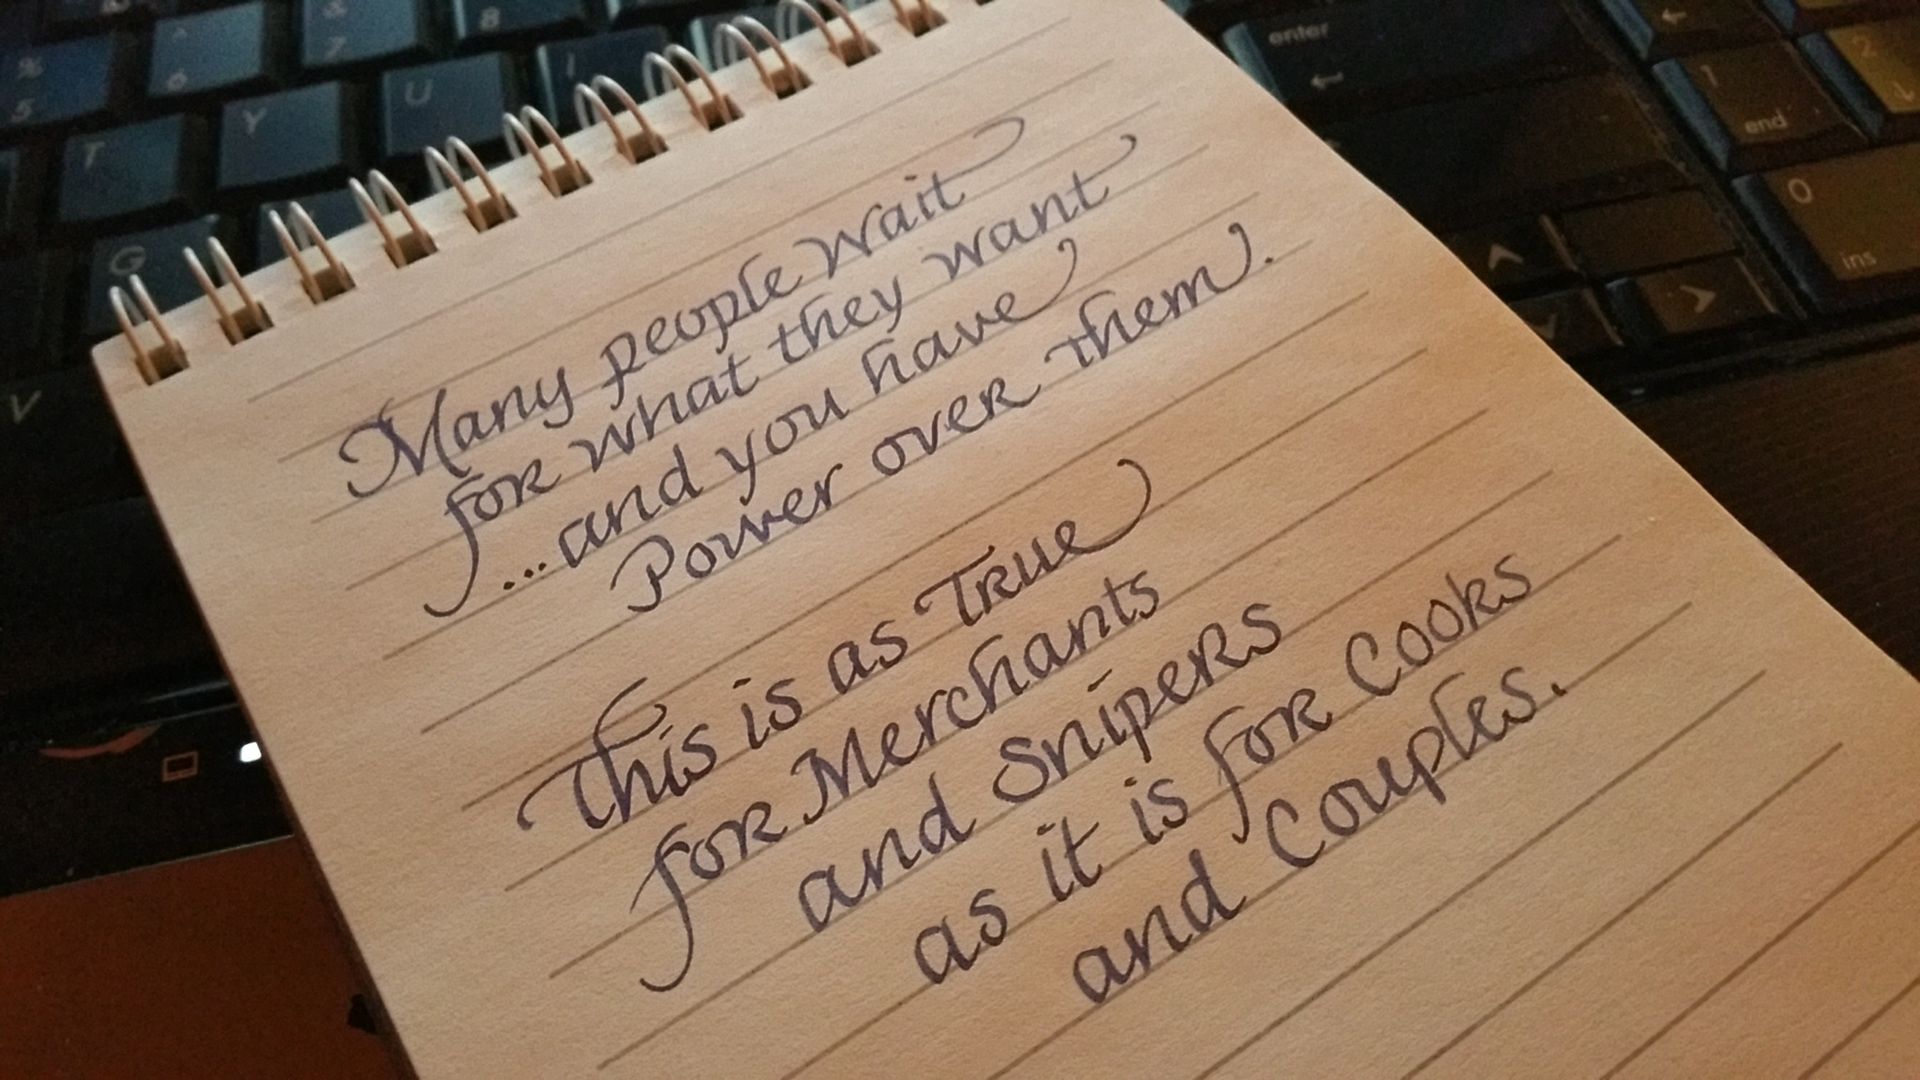 Many people wait
for what they want
...and you have
Power over them.
This is as True
for Merchants
and Snipers
as it is for Cooks
and Couples.
%
5
^
6
&
7
8
T
Y
U
I
G
V
enter
1
end
2
0
ins